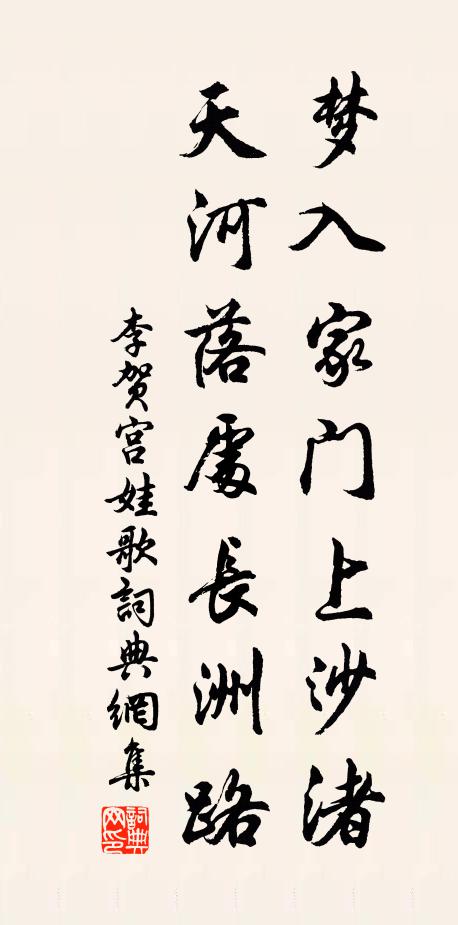 梦入家门上沙渚
天河落處長洲路
李贺宫娃歌詞典網集
詞典网印